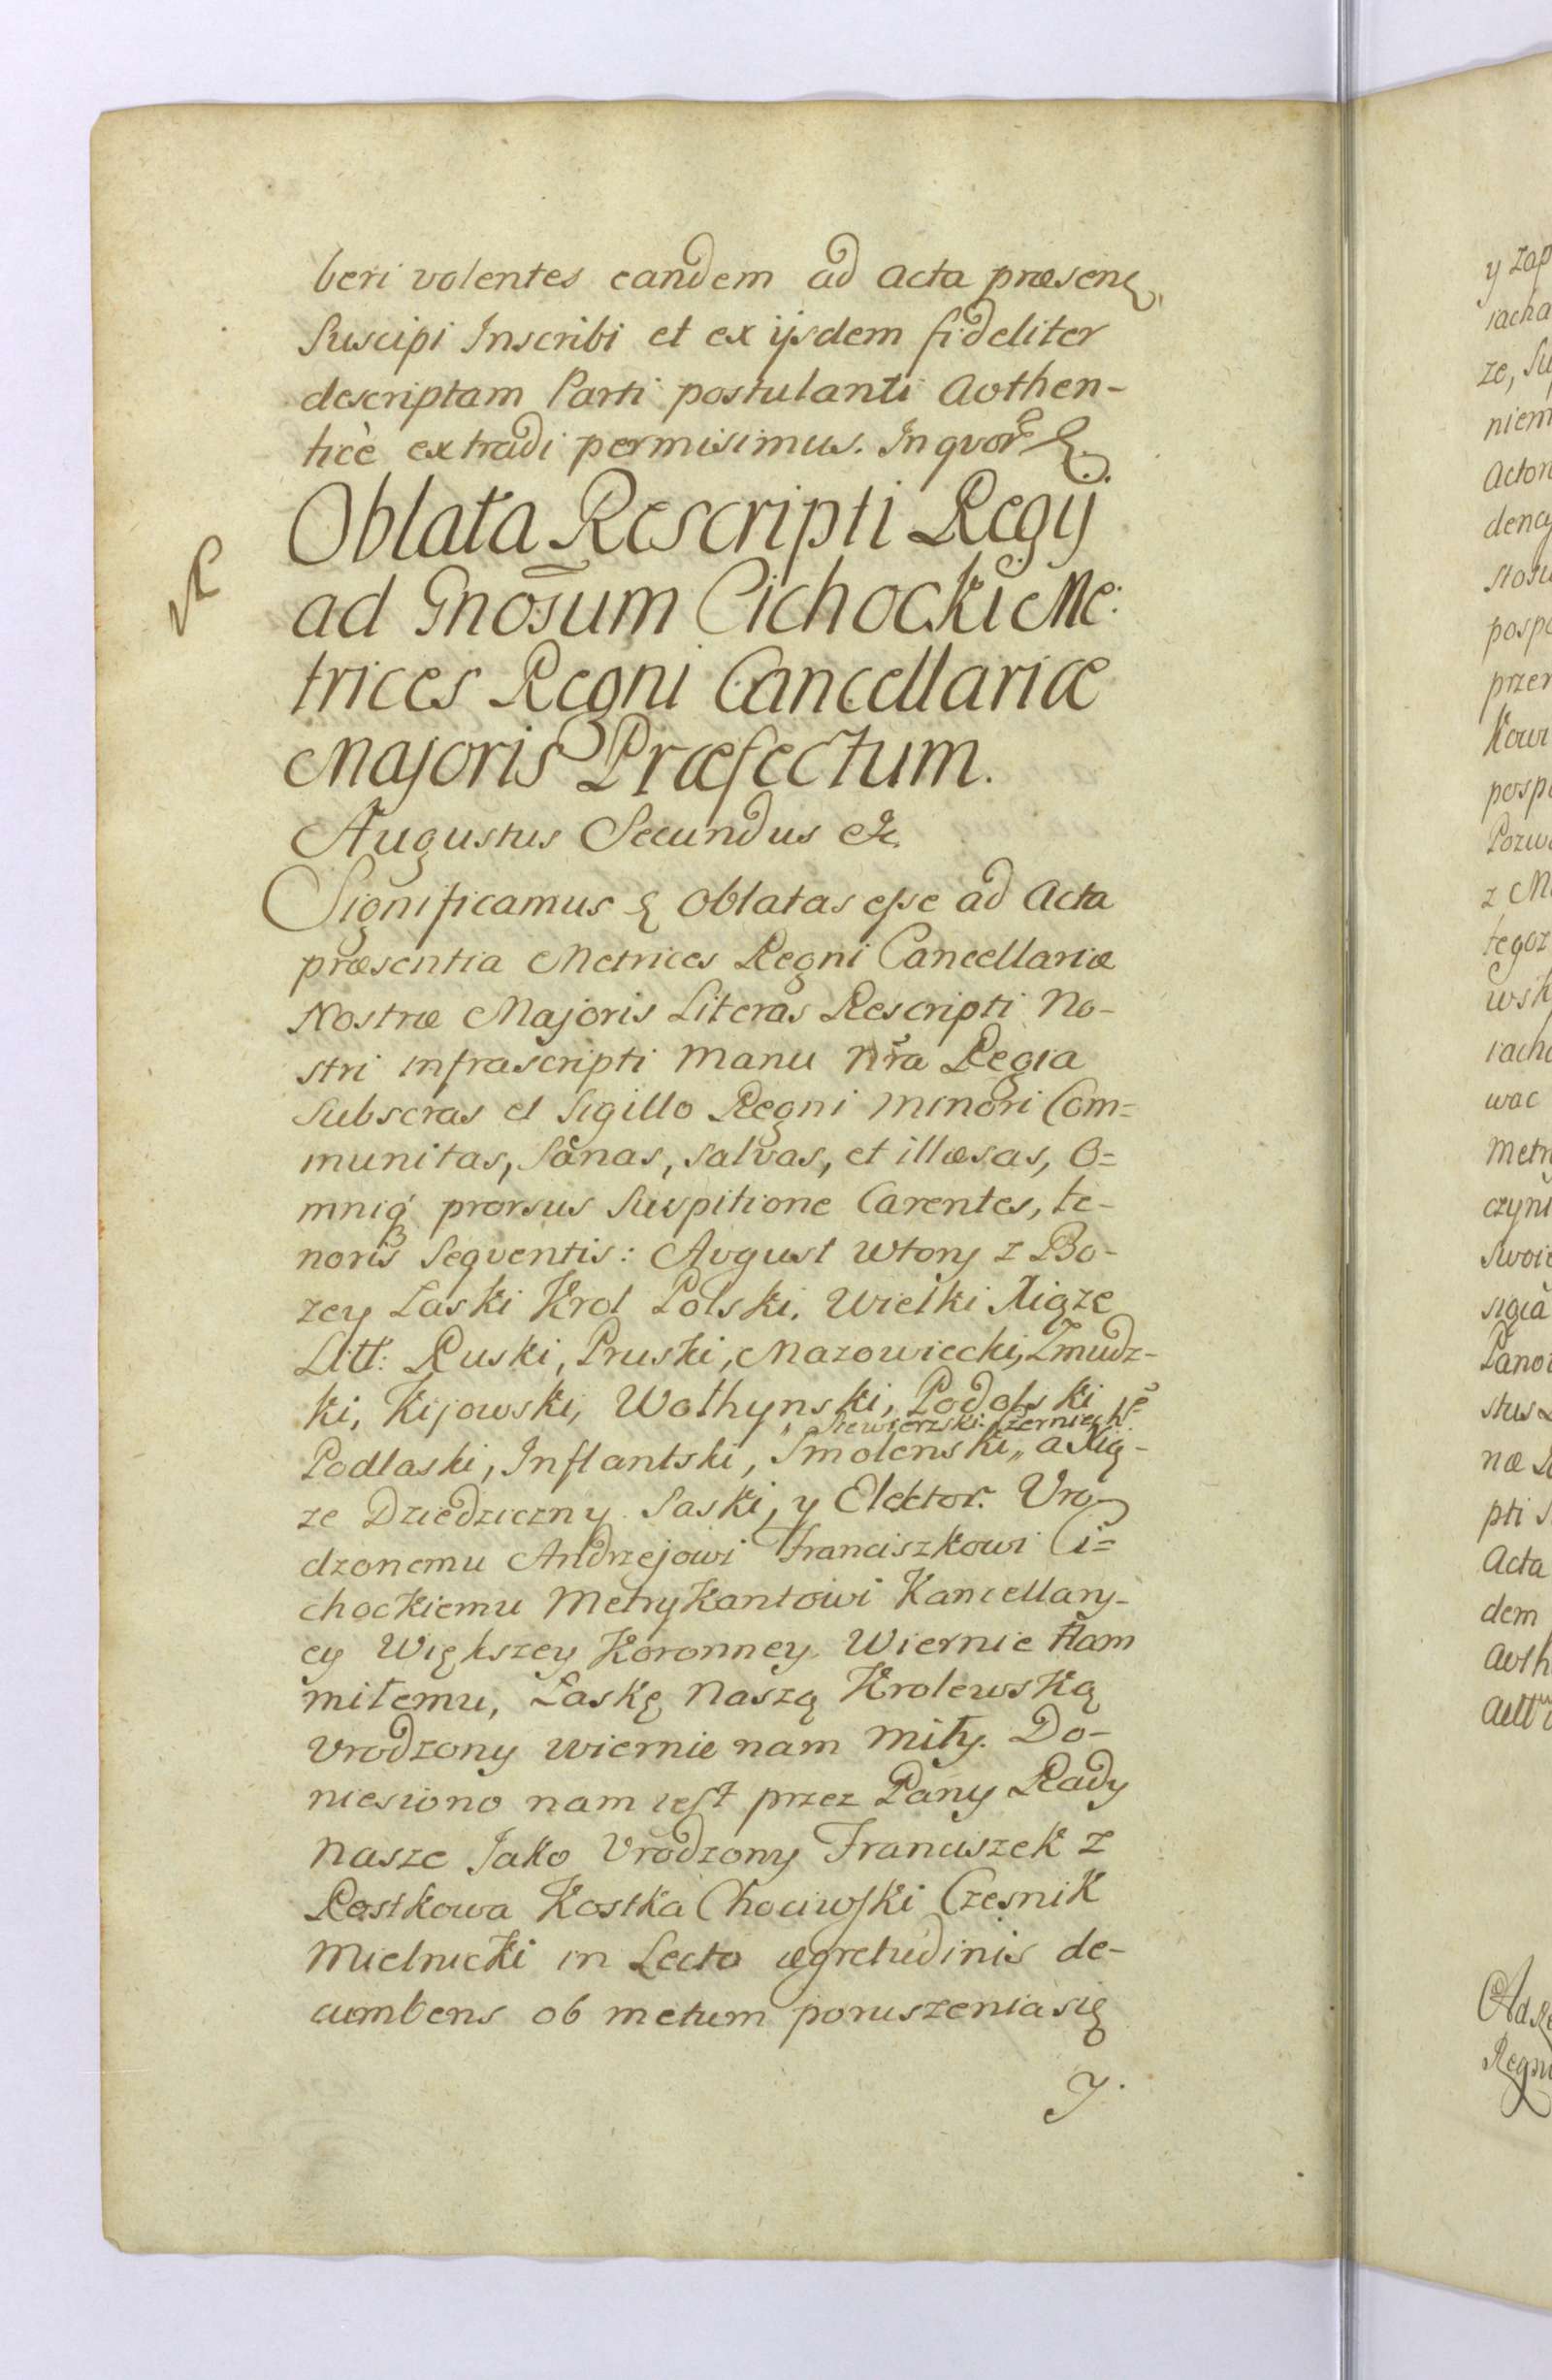 beri volentes eandem ad acta præsen&,
Suscipi Inscribi et ex ijsdem fideliter
descriptam Parti postulanti Authen-
ticè extradi permisimus. In quor &.
Oblata Rescripti Regij
ad Gnosum Cichocki Me:
trices Regni Cancellariæ
Majoris Præfectum.
Augustus Secundus &c.
Significamus & Oblatas esse ad Acta
præsentia Metrices Regni Cancellariæ
Nostræ Majoris Literas Rescripti No-
stri infrascripti Manu Nra Regia
Subscras et Sigillo Regni Minori Com=
munitas, Sanas, salvas, et illæsas, O=
mniq prorsus Suspitione Carentes, te-
noris Sequentis: August wtory z Bo-
zey Laski Krol Polski, Wielki Xiąze
Litt: Ruski, Pruski, Mazowiecki, Zmudz-
ki, Kijowski, Wołhynski, Podolski
Podlaski, Inflantski, Smolenski, Siewierzski: Czerniech: a Xią-
ze Dziedziczny Saski, y Elektor. Uro-
dzonemu Andrzejowi Franciszkowi Ci=
chockiemu Metrykantowi Kancellary-
ey Większey Koronney Wiernie Nam
miłemu, Łaskę Naszą Krolewską
Vrodzony wiernie nam miły. Do-
niesiono nam iest przez Pany Rady
Nasze Jako Vrodzony Franciszek z
Rostkowa Kostka Chociwski Czesnik
Mielnicki in Lecto ægretudinis de-
cumbens ob metum poruszenia się
y.